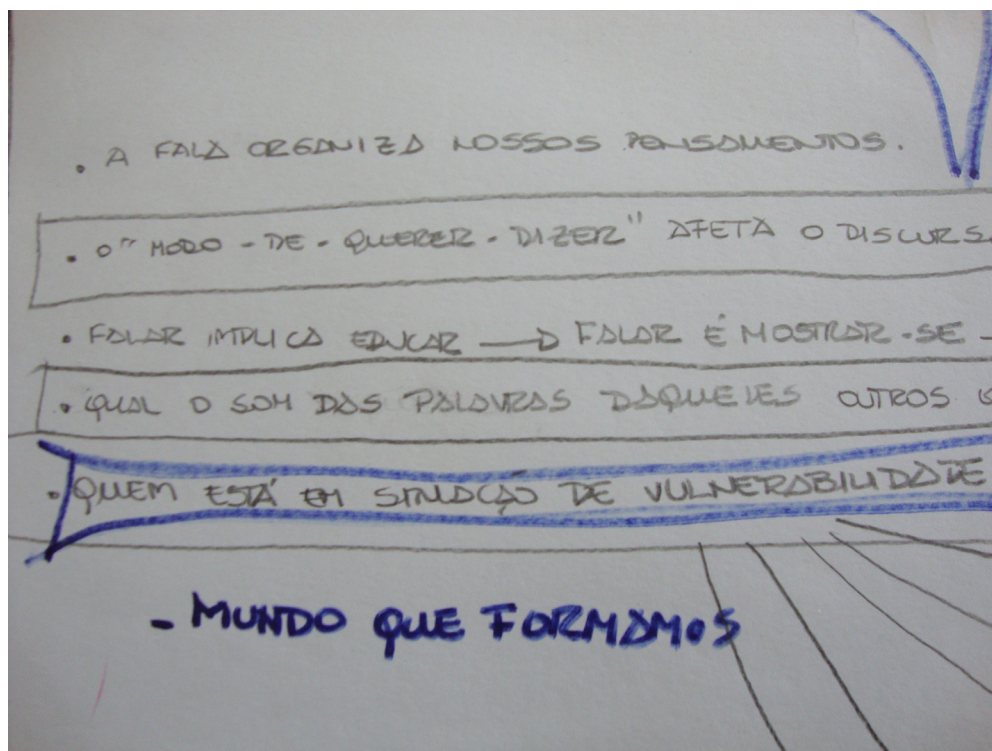 . A FALA ORGANIZA NOSSOS PENSAMENTOS.
. O "MODO-DE-QUERER-DIZER" AFETA O DISCURS
. FALAR IMPLICA EDUCAR → FALAR É MOSTRAR-SE -
. QUAL O SOM DAS PALAVRAS DAQUELES OUTROS
. QUEM ESTÁ EM SITUAÇÃO DE VULNERABILIDADE
- MUNDO QUE FORMAMOS